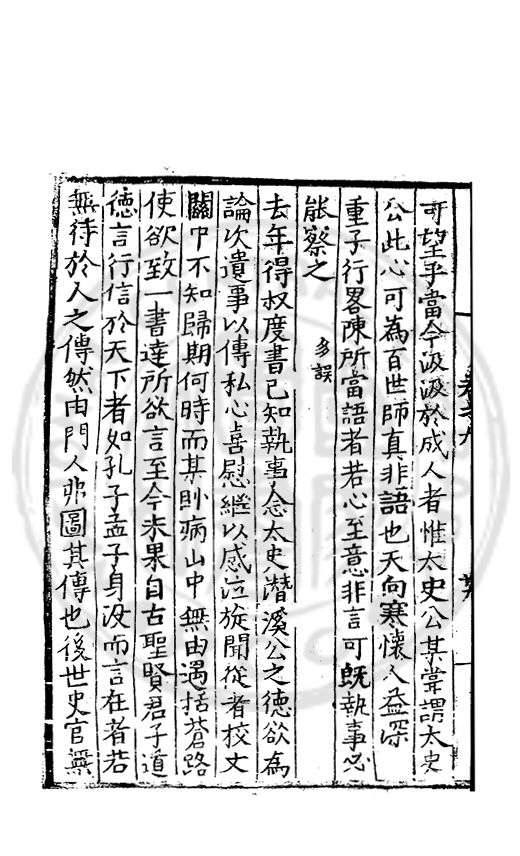 可望乎當今汲汲於成人者惟太史公某嘗謂太史
公此心可為百世師真非語也天向寒懷人益深
重子行畧陳所當語者若心至意非言可既執事必
能察之　多誤
去年得叔度書已知執事念太史潛溪公之徳欲為
論次遺事以傳私心喜慰繼以感泣旋聞從者校文
關中不知歸期何時而某卧病山中無由遇括蒼路
使欲致一書達所欲言至今未果自古聖賢君子道
徳言行信於天下者如孔子孟子身沒而言在者若
無待於人之傳然由門人弗圖其傳也後世史官無